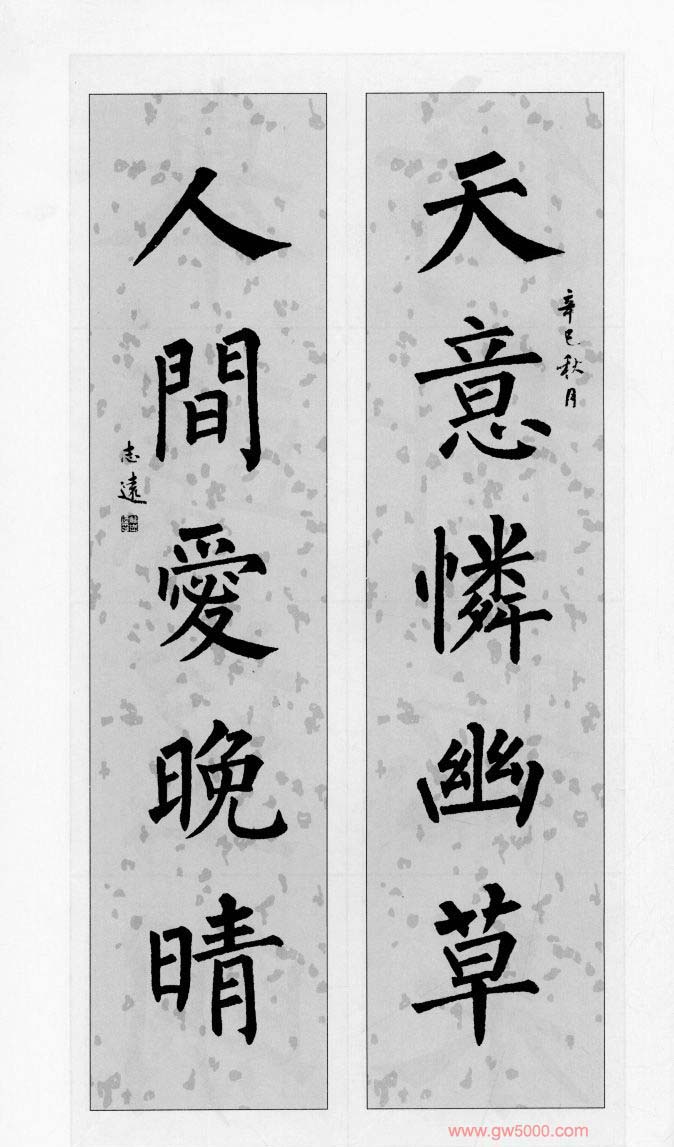 天意憐幽草
辛巳秋月
人間愛晚晴
志遠
www.gw5000.com